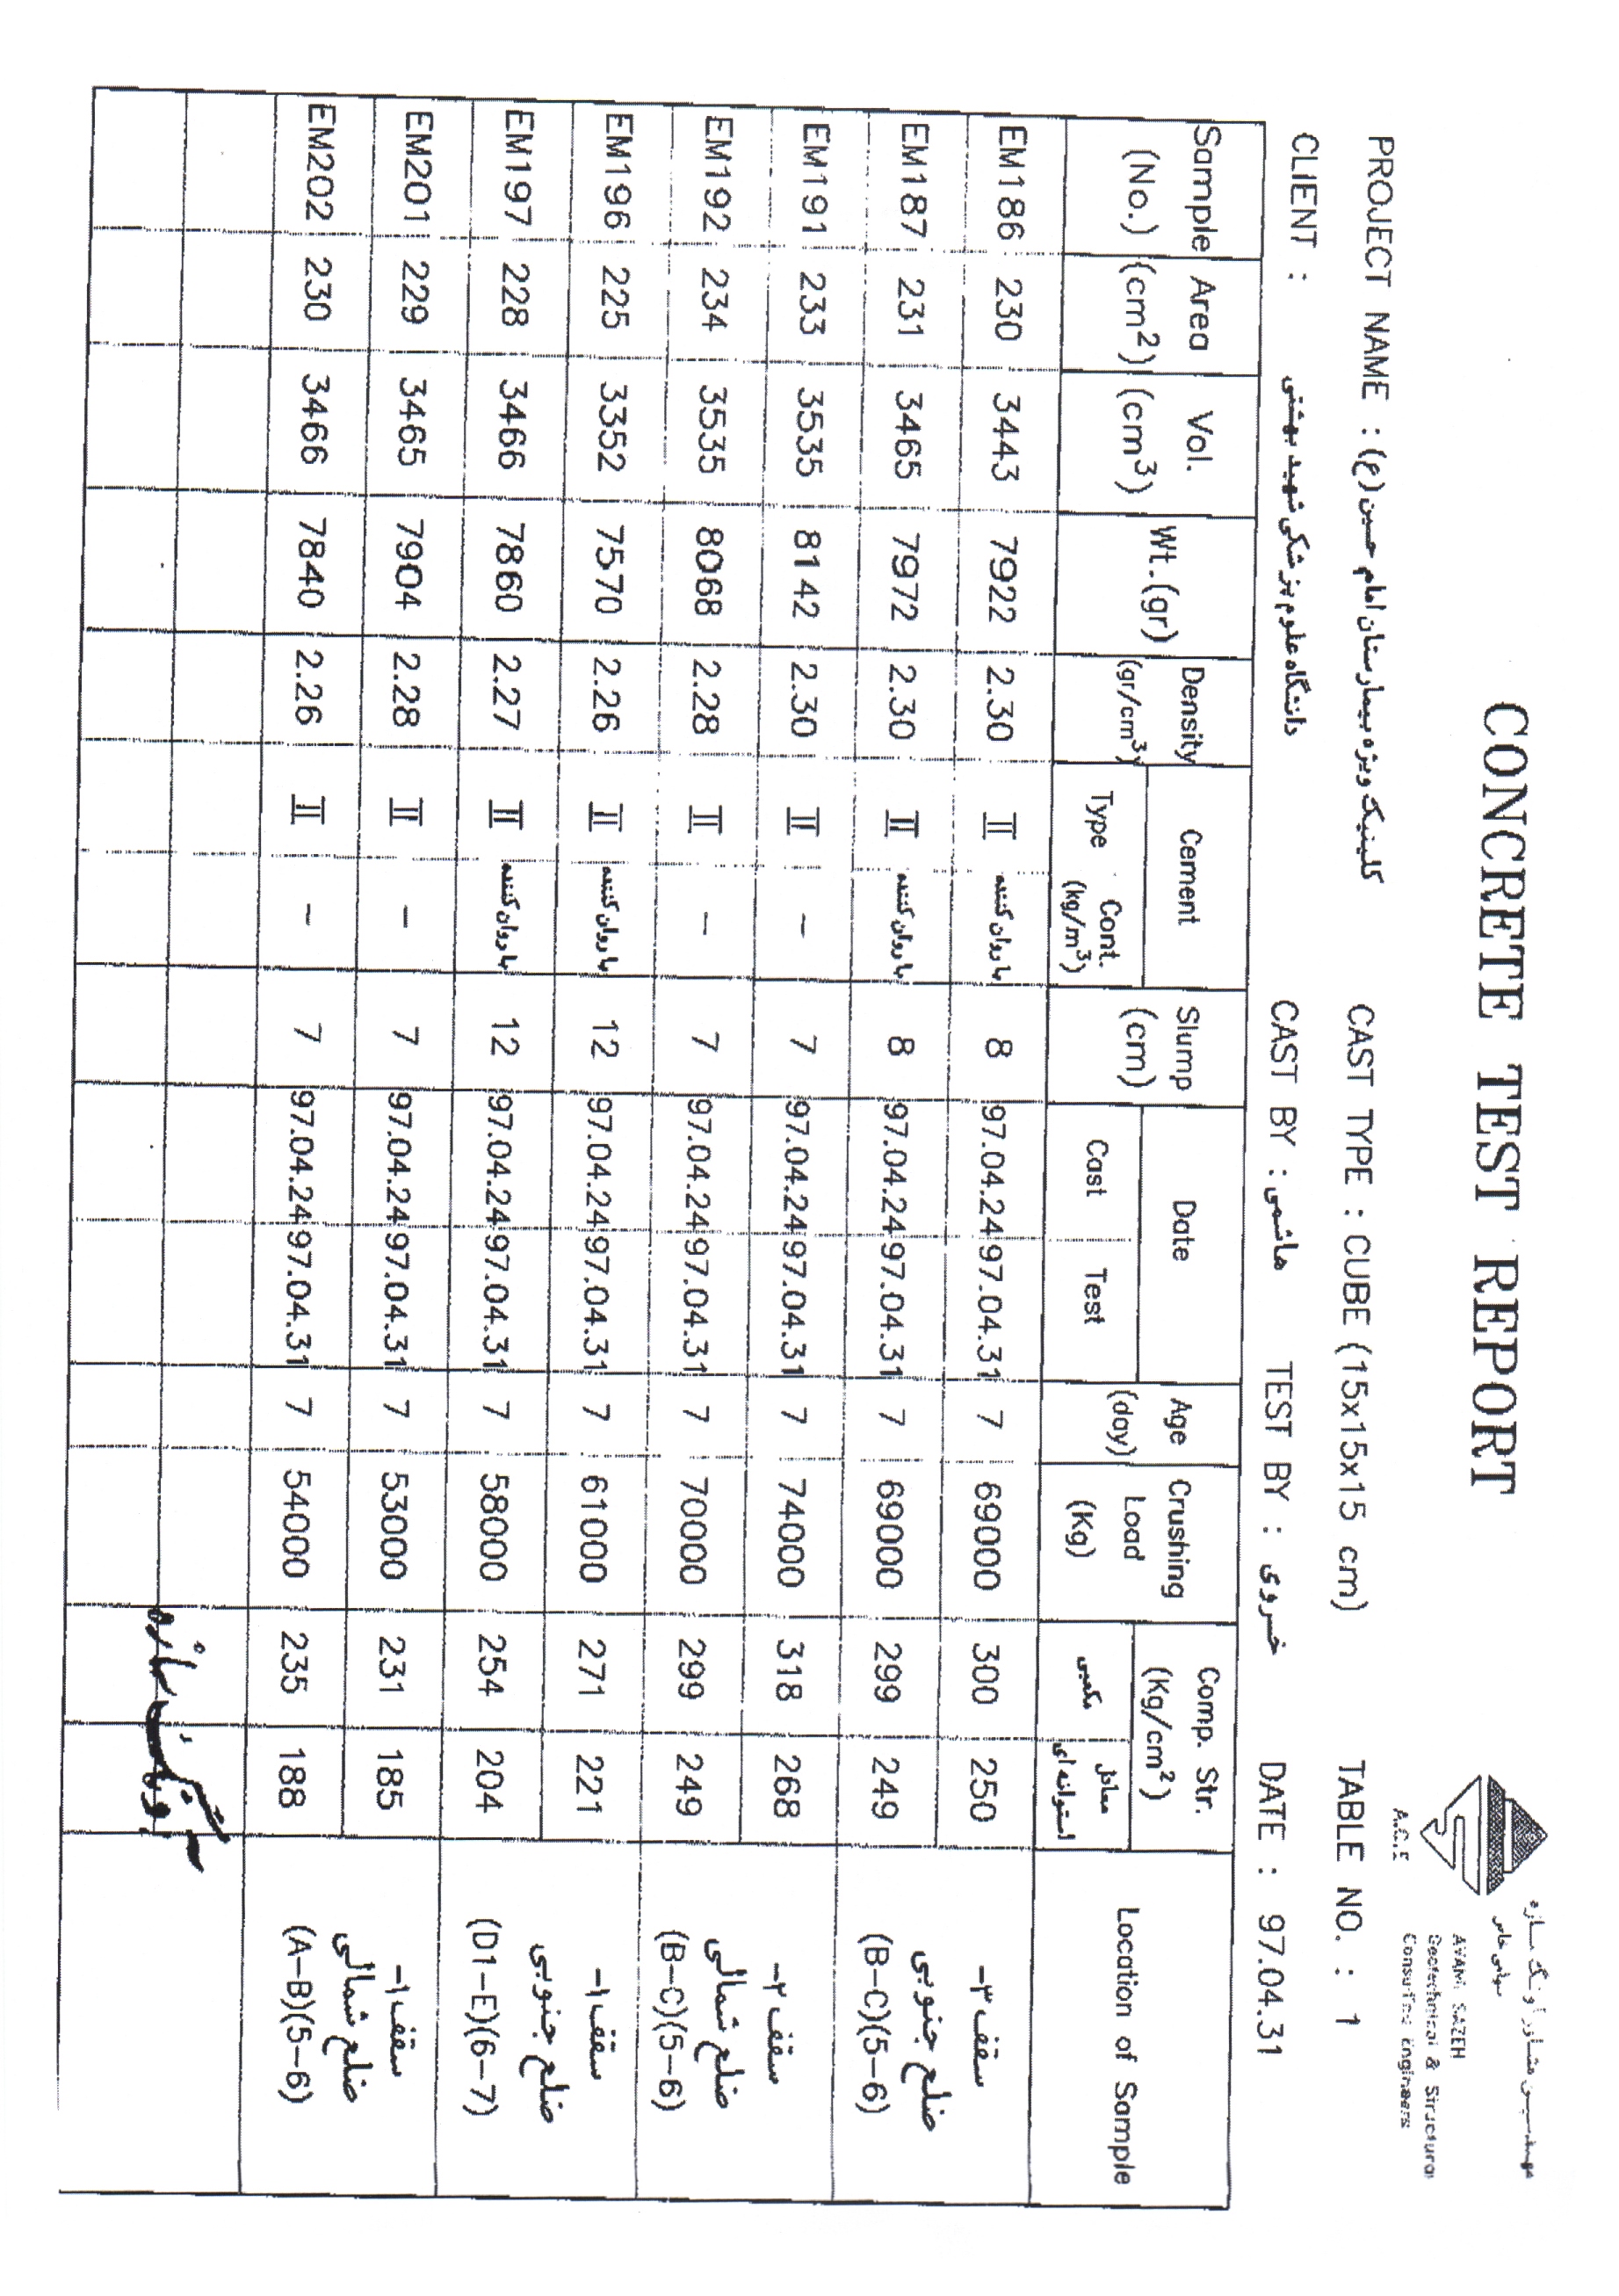 CONCRETE TEST REPORT
مهندسین مشاور آونگ سازه
سهامی خاص
AVANG SAZEH
Geotechnical & Structural
Consulting Engineers
A.G.E
PROJECT NAME : کلینیک ویژه بیمارستان امام حسین (ع) CAST TYPE : CUBE (15x15x15 cm) TABLE NO. : 1
CLIENT : دانشگاه علوم پزشکی شهید بهشتی CAST BY : هاشمی TEST BY : خسروی DATE : 97.04.31
Sample (No.) Area (cm2) Vol. (cm3) Wt.(gr) Density (gr/cm3) Cement Type Cont. (kg/m3) Slump (cm) Date Cast Test Age (day) Crushing Load (Kg) Comp. Str. (Kg/cm2) مکعبی معادل استوانه ای Location of Sample
EM186 230 3443 7922 2.30 II با روان کننده 8 97.04.24 97.04.31 7 69000 300 250 سقف ۳-
EM187 231 3465 7972 2.30 II با روان کننده 8 97.04.24 97.04.31 7 69000 299 249 ضلع جنوبی (B-C)(5-6)
EM191 233 3535 8142 2.30 II - 7 97.04.24 97.04.31 7 74000 318 268 سقف ۳-
EM192 234 3535 8068 2.28 II - 7 97.04.24 97.04.31 7 70000 299 249 ضلع شمالی (B-C)(5-6)
EM196 225 3352 7570 2.26 II با روان کننده 12 97.04.24 97.04.31 7 61000 271 221 سقف ۱-
EM197 228 3466 7860 2.27 II با روان کننده 12 97.04.24 97.04.31 7 58000 254 204 ضلع جنوبی (D1-E)(6-7)
EM201 229 3465 7904 2.28 II - 7 97.04.24 97.04.31 7 53000 231 185 سقف ۱-
EM202 230 3466 7840 2.26 II - 7 97.04.24 97.04.31 7 54000 235 188 ضلع شمالی (A-B)(5-6)